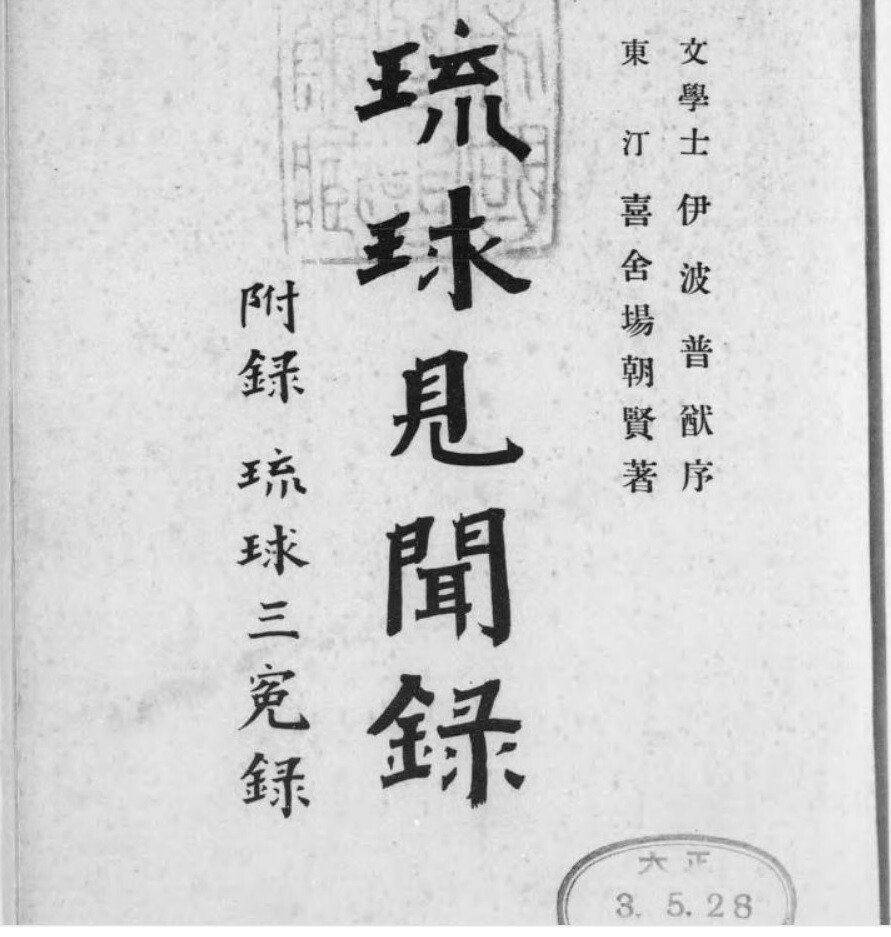 文學士 伊波普猷序
東汀 喜舍場朝賢著
琉球見聞録
附録 琉球三冤録
大正
3.5.28